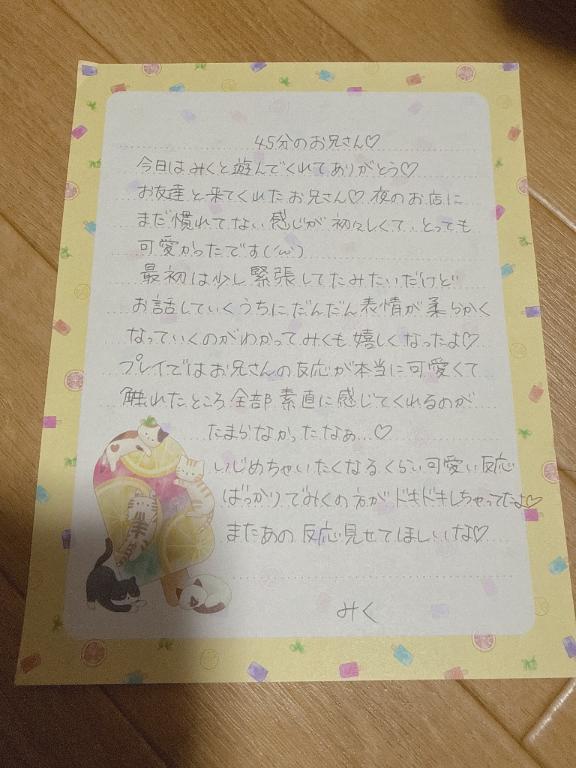 45分のお兄さん♡
今日はみくと遊んでくれてありがとう♡
お友達と来てくれたお兄さん♡夜のお店に
まだ慣れてない感じが初々しくて、とっても
可愛かったです(´ω`)
最初は少し緊張してたみたいだけど
お話していくうちにだんだん表情が柔らかく
なっていくのがわかってみくも嬉しくなったよ♡
プレイではお兄さんの反応が本当に可愛くて
触れたところ全部素直に感じてくれるのが
たまらなかったなぁ…♡
いじめちゃいたくなるくらい可愛い反応
ばっかりでみくの方がドキドキしちゃってたよ♡
またあの反応見せてほしいな♡
みく